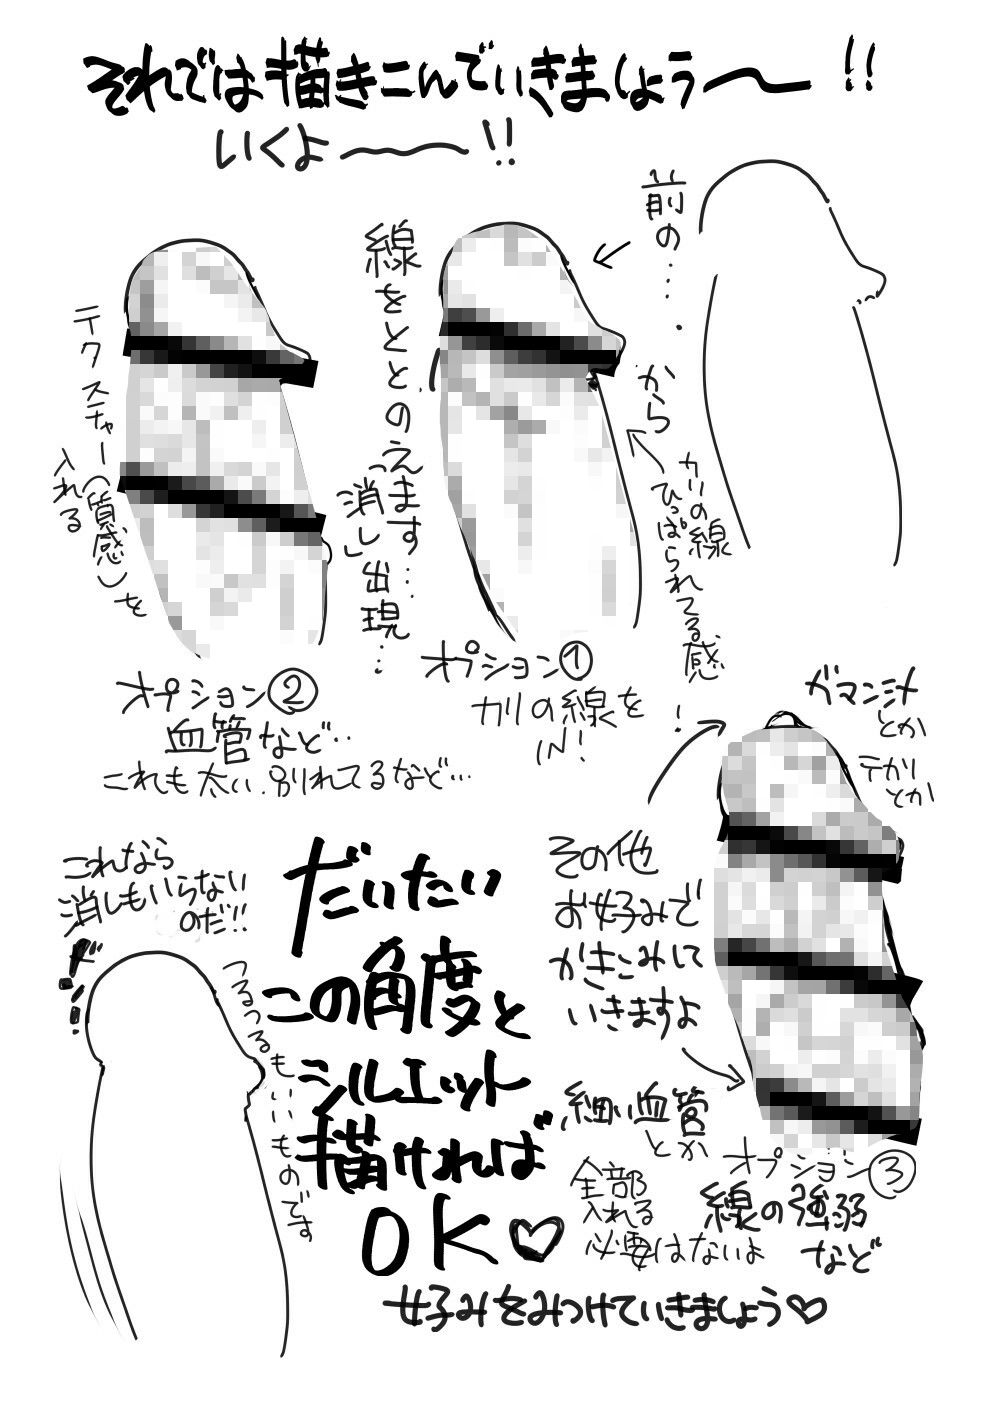 それでは描きこんでいきましょう〜!!
いくよ〜!!
前の…
から
カリの線
ひっぱられてる感
線をととのえます…
「消し」出現…
テクスチャー(質感)を
入れる
オプション①
カリの線を
IN!
オプション②
血管など‥
これも太い、別れてるなど…
!
ガマン汁
とか
テカリ
とか
その他
お好みで
かきこみして
いきますよ
細い血管
とか
オプション③
線の強弱
など
全部
入れる
必要はないよ
これなら
消しもいらない
のだ!!
つるつるもいいものです
だいたい
この角度と
シルエット
描ければ
OK♡
好みをみつけていきましょう♡